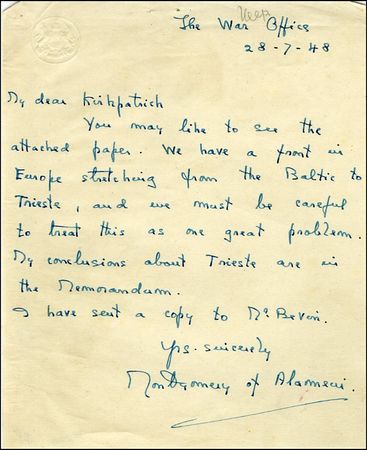 Keep
The War Office
28-7-48
My dear Kirkpatrick
You may like to see the
attached paper. We have a front in
Europe stretching from the Baltic to
Trieste, and we must be careful
to treat this as one great problem.
My conclusions about Trieste are in
the Memorandum.
I have sent a copy to Mr Bevin.
Yrs. sincerely
Montgomery of Alamein.